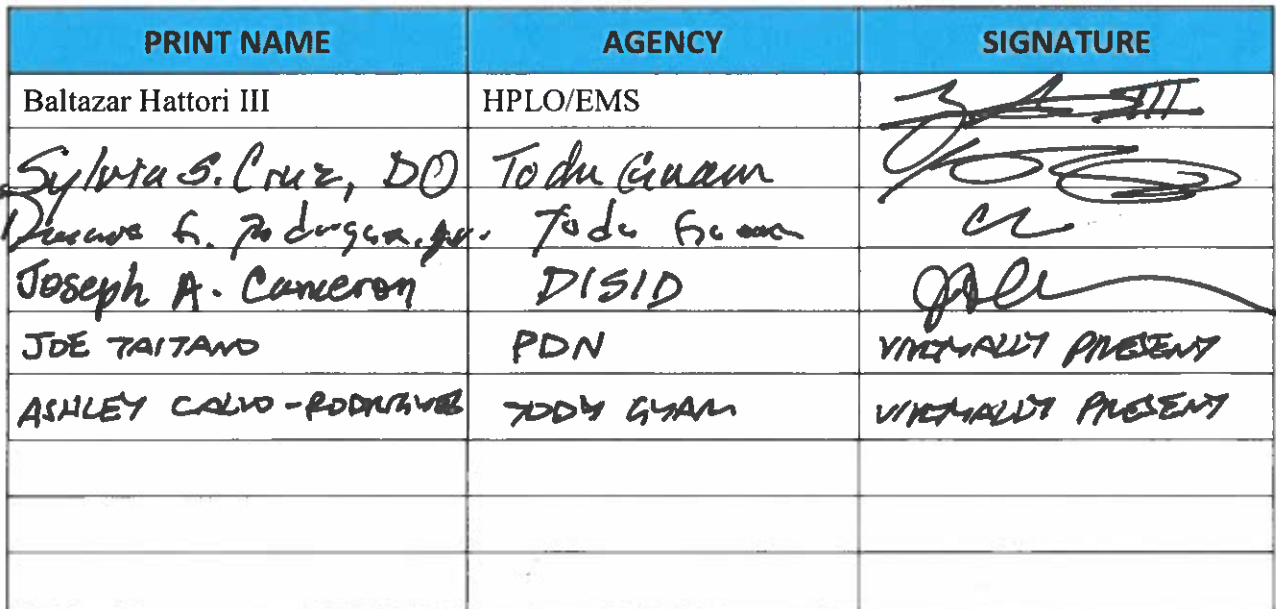 PRINT NAME AGENCY SIGNATURE
Baltazar Hattori III HPLO/EMS III
Sylvia S. Cruz, DO Todu Guam
G. Rodriguez, Jr. Todu Guam
Joseph A. Cameron DISID
JOE TAITANO PDN VIRTUALLY PRESENT
ASHLEY CALVO-RODRIGUEZ TODU GUAM VIRTUALLY PRESENT